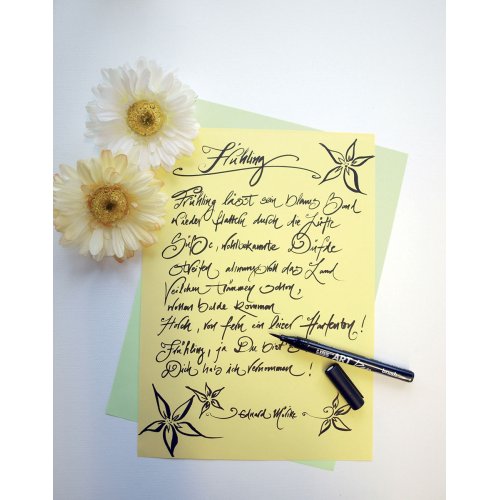 Frühling
Frühling lässt sein blaues Band
wieder flattern durch die Lüfte
Süße, wohlbekannte Düfte
streifen ahnungsvoll das Land
Veilchen träumen schon,
wollen balde kommen
Horch, von fern ein leiser Harfenton!
Frühling, ja Du bist
Dich hab ich vernommen!
Eduard Mörike
ART